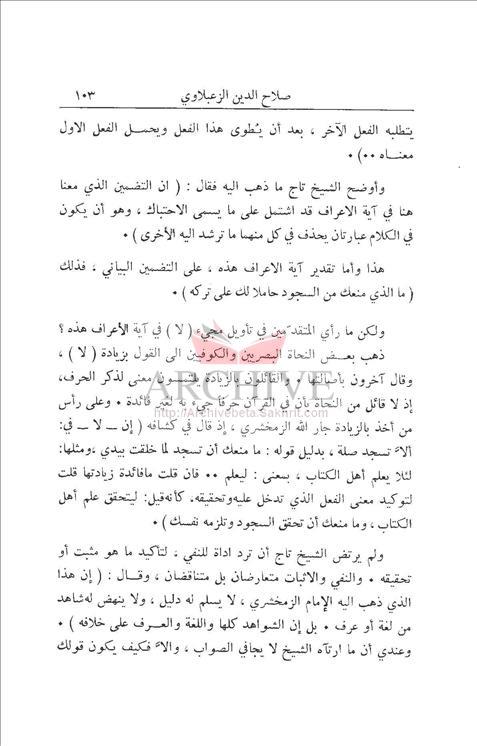 صلاح الدين الزعبلاوي ١٠٣
يتطلبه الفعل الآخر ، بعد أن يُطوى هذا الفعل ويحمل الفعل الاول
معناه ٠٠) ٠
وأوضح الشيخ تاج ما ذهب اليه فقال : ( ان التضمين الذي معنا
هنا في آية الاعراف قد اشتمل على ما يسمى الاحتباك ، وهو أن يكون
في الكلام عبارتان يحذف في كل منهما ما ترشد اليه الأخرى ) ٠
هذا وأما تقدير آية الاعراف هذه ، على التضمين البياني ، فذلك
( ما الذي منعك من السجود حاملا لك على تركه ) ٠
ولكن ما رأي المتقدّمين في تأويل مجيء ( لا ) في آية الأعراف هذه ؟
ذهب بعض النحاة البصريين والكوفيين الى القول بزيادة ( لا ) ،
وقال آخرون بأصالتها ٠ والقائلون بالزيادة يلتمسون معنى لذكر الحرف،
إذ لا قائل من النحاة بأن في القرآن حرفا جيء به لغير فائدة ٠ وعلى رأس
من أخذ بالزيادة جار الله الزمخشري ، إذ قال في كشافه ( إن ــ لا ــ في:
ألاّ تسجد صلة ، بدليل قوله : ما منعك أن تسجد لما خلقت بيدي ،ومثلها:
لئلا يعلم أهل الكتاب ، بمعنى : ليعلم ٠٠ فان قلت مافائدة زيادتها قلت
لتوكيد معنى الفعل الذي تدخل عليه وتحقيقه، كأنه قيل: ليتحقق علم أهل
الكتاب ، وما منعك أن تحقق السجود وتلزمه نفسك ) ٠
ولم يرتض الشيخ تاج أن ترد اداة للنفي ، لتأكيد ما هو مثبت أو
تحقيقه ٠ والنفي والاثبات متعارضان بل متناقضان ، وقال : ( إن هذا
الذي ذهب اليه الإمام الزمخشري ، لا يسلم له دليل ، ولا ينهض له شاهد
من لغة أو عرف ٠ بل إن الشواهد كلها واللغة والعرف على خلافه ) ٠
وعندي أن ما ارتآه الشيخ لا يجافي الصواب ، والاّ فكيف يكون قولك
ARCHIVE
http://Archivebeta.Sakhrit.com